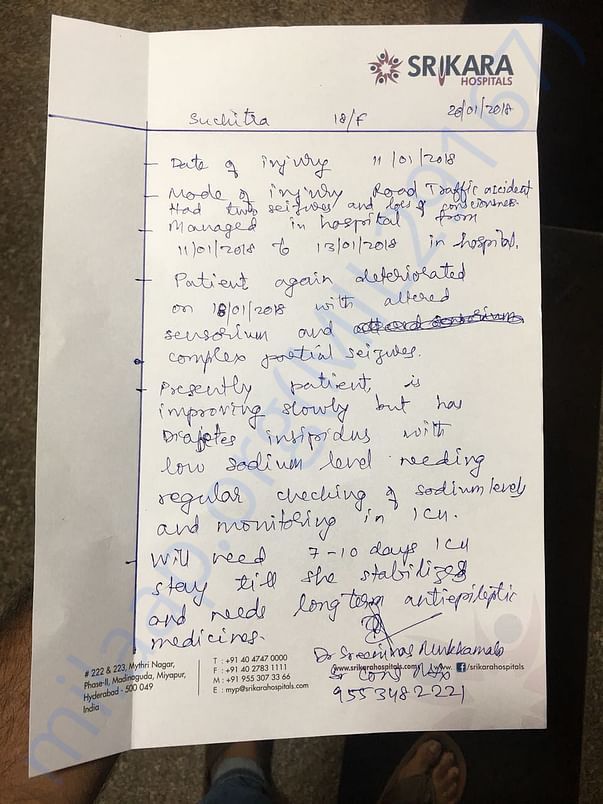 SRIKARA
HOSPITALS
20/01/2018
Suchitra 18/F
Date of injury 11/01/2018
Mode of injury Road Traffic accident
Had two seizures and loss of consciousness
Managed in hospital from
11/01/2018 to 13/01/2018 in hospital.
Patient again deteriorated
on 18/01/2018 with altered
sensorium and
complex partial seizures.
Presently patient, is
improving slowly but has
Diabetes insipidus with
low sodium level needing
regular checking of sodium levels
and monitoring in ICU.
Will need 7-10 days ICU
stay till she stabilizes
and needs long term antiepileptic
medicines.
Dr Sreenivas
Sr Cons
9553482221
# 222 & 223, Mythri Nagar,
Phase-II, Madinaguda, Miyapur,
Hyderabad - 500 049
India
T : +91 40 4747 0000
F : +91 40 2783 1111
M : +91 955 307 33 66
E : myp@srikarahospitals.com
www.srikarahospitals.com
www. /srikarahospitals